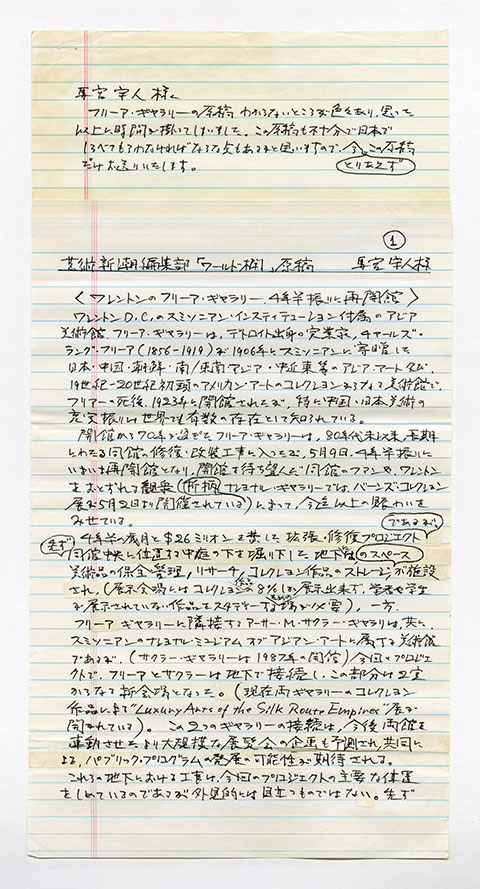 馬宮守人様
フリーア・ギャラリーの原稿 わからないところが色々あり、思った
以上に時間を掛けてしまいました。この原稿も不十分で日本で
しらべてもらわなければならな点もあると思いますので、今、この原稿
とりあえず
だけお送りいたします。
1
芸術新潮編集部「ワールド・欄」原稿 馬宮守人様
〈ワシントンのフリーア・ギャラリー、4年半振りに再開館〉
ワシントンD.C.のスミソニアン・インスティテューション付属のアジア
美術館、フリーア・ギャラリーは、デトロイト出身の実業家、チャールズ・
ラング・フリーア(1856-1919)が1906年にスミソニアンに寄贈した
日本・中国・朝鮮・南/東南アジア・中近東等のアジア・アート及び、
19世紀-20世紀初頭のアメリカン・アートのコレクションからなる美術館で、
フリアーの死後、1923年に開館されたが、特に中国・日本美術の
充実振りは世界でも有数の存在として知られている。
開館から70年を過ぎたフリーア・ギャラリーは、80年代末以来、長期
にわたる閉館、修復・改装工事に入ったが、5月9日、4年半振りに
いよいよ再開館となり、開館を待ち望んだ同館のファンや、ワシントン
をおとずれる観衆(折柄ナショナル・ギャラリーでは、バーンズ・コレクション
展が5月2日より開催されている)によって、今迄以上の賑わいを
みせている。
4年半の歳月と$26ミリオンを費した拡張・修復プロジェクト
であるが
先ず
同館中央に位置する中庭の下を掘り下した地下に
のスペース
美術品の保全と管理、リサーチ、コレクション作品のストレージが施設
され、(展示会場にはコレクション作品の8%しか展示出来ず、学者や学生
が展示されていない作品をスタディーする場が必要)、一方、
フリーア・ギャラリーに隣接するアーサー・M・サクラー・ギャラリーは、共に、
スミソニアンのナショナル・ミュージアム オブ アジアン・アートに属する美術館
であるが、(サクラー・ギャラリーは1987年の開館)今回のプロジェ
クトで、フリーアとサクラーは地下で接続し、この部分は2室
からなる新会場となった。(現在両ギャラリーのコレクション
作品による"Luxury Arts of the Silk Route Empires"展が
開かれている)。この2つのギャラリーの接続は、今後両館を
連動させたより大規模な展覧会の企画も予測され、共同に
よる、パブリック・プログラムの発展の可能性が期待される。
これらの地下における工事は、今回のプロジェクトの主要な位置
をしめているのであるが外見的には目立つものではない。先ず